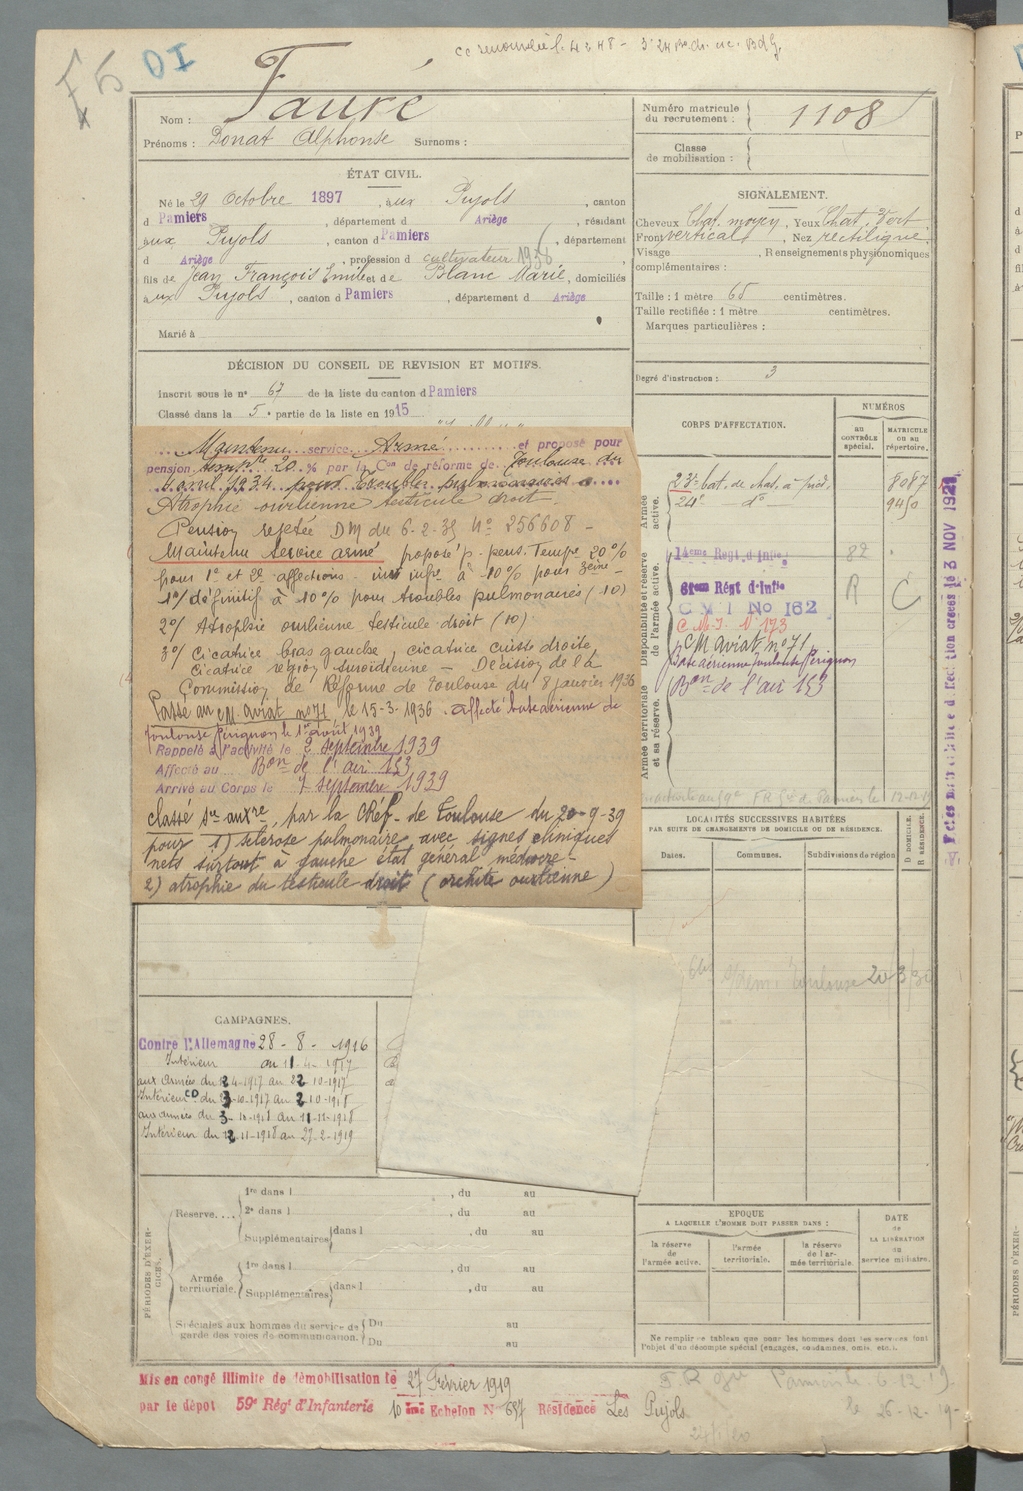 F5 DI
Nom : Fauré
Prénoms : Donat Alphonse Surnoms :
Numéro matricule
du recrutement : 1108
Classe
de mobilisation :
ÉTAT CIVIL.
Né le 29 Octobre 1897, aux Pujols, canton
d Pamiers, département d Ariège, résidant
aux Pujols, canton d Pamiers, département
d Ariège, profession d cultivateur 1936
fils de Jean François Emile et de Blanc Marie, domiciliés
aux Pujols, canton d Pamiers, département d Ariège
Marié à
SIGNALEMENT.
Cheveux Chat. moyen, Yeux Chat. Vert
Front vertical, Nez rectiligne
Visage, Renseignements physionomiques
complémentaires :
Taille : 1 mètre 65 centimètres.
Taille rectifiée : 1 mètre centimètres.
Marques particulières :
Degré d'instruction : 3
DÉCISION DU CONSEIL DE REVISION ET MOTIFS.
Inscrit sous le n° 67 de la liste du canton d Pamiers
Classé dans la 5e partie de la liste en 1915
Maintenu service Armé et proposé pour
pension temp. 20 % par la Con de réforme de Toulouse du
avril 1934 pour troubles pulmonaires
Atrophie ourlienne testicule droit
Pension rejetée DM du 6-2-35 N° 256608 -
Maintenu service armé proposé p. pens. Tempre 20%
pour 1e et 2e affections - infre à 10% pour 3eme -
1°/ définitif à 10% pour troubles pulmonaires (10)
2°/ Atrophie ourlienne testicule droit (10)
3°/ Cicatrice bras gauche, cicatrice cuisse droite,
Cicatrice région - Décision de la
Commission de Réforme de Toulouse du 8 janvier 1936
Passé au CM. aviat n°71, le 15-3-1936. affecté base aérienne de
Toulouse le 1er août 1939
Rappelé à l'activité le 2 septembre 1939
Affecté au Bon de l'air 153
Arrivé au Corps le 7 septembre 1939
classé sce auxre, par la CRéf. de Toulouse du 20-9-39
pour 1) Sclérose pulmonaire avec signes cliniques
nets surtout à gauche état général médiocre -
2) atrophie du testicule droit (orchite ourlienne)
CORPS D'AFFECTATION.
NUMÉROS
au
CONTRÔLE
spécial.
MATRICULE
ou au
répertoire.
Armée
active.
23e bat. de chas. à pied. 8087
24e - do - 9450
Disponibilité et réserve
de l'armée active.
14eme Regt d'Infie 82
61eme Régt d'Infie R C
C M I No 162
C.M.I. N° 173
CM aviat n°71
Base aérienne Toulouse
Bon de l'air 153
Armée territoriale
et sa réserve.
LOCALITÉS SUCCESSIVES HABITÉES
PAR SUITE DE CHANGEMENTS DE DOMICILE OU DE RÉSIDENCE.
Dates.
Communes.
Subdivisions de région
D DOMICILE.
R RÉSIDENCE.
Toulouse 20/3/
CAMPAGNES.
Contre l'Allemagne 28-8-1916
Intérieur au 11-4-1917
aux Armées du 12-4-1917 au 22-10-1917
Intérieur CD du 23-10-1917 au 2-10-1918
aux armées du 3-10-1918 au 11-11-1918
Intérieur du 12-11-1918 au 27-2-1919
PÉRIODES D'EXERCICES.
Réserve....
1re dans l , du au
2e dans l , du au
Supplémentaires dans l , du au
Armée
territoriale.
1re dans l , du au
Supplémentaires dans l , du au
Spéciales aux hommes du service de
garde des voies de communication.
Du au
Du au
EPOQUE
A LAQUELLE L'HOMME DOIT PASSER DANS :
la réserve
de
l'armée active.
l'armée
territoriale.
la réserve
de l'ar-
mée territoriale.
DATE
de
LA LIBÉRATION
du
service militaire.
Ne remplir ce tableau que pour les hommes dont les services font
l'objet d'un décompte spécial (engagés, condamnés, omis, etc.).
Mis en congé illimité de démobilisation le 27 Février 1919
par le dépôt 59e Régt d'Infanterie 10 ème Echelon N° 657 Résidence Les Pujols
6-12-19
le 26-12-19
PÉRIODES D'EXER-